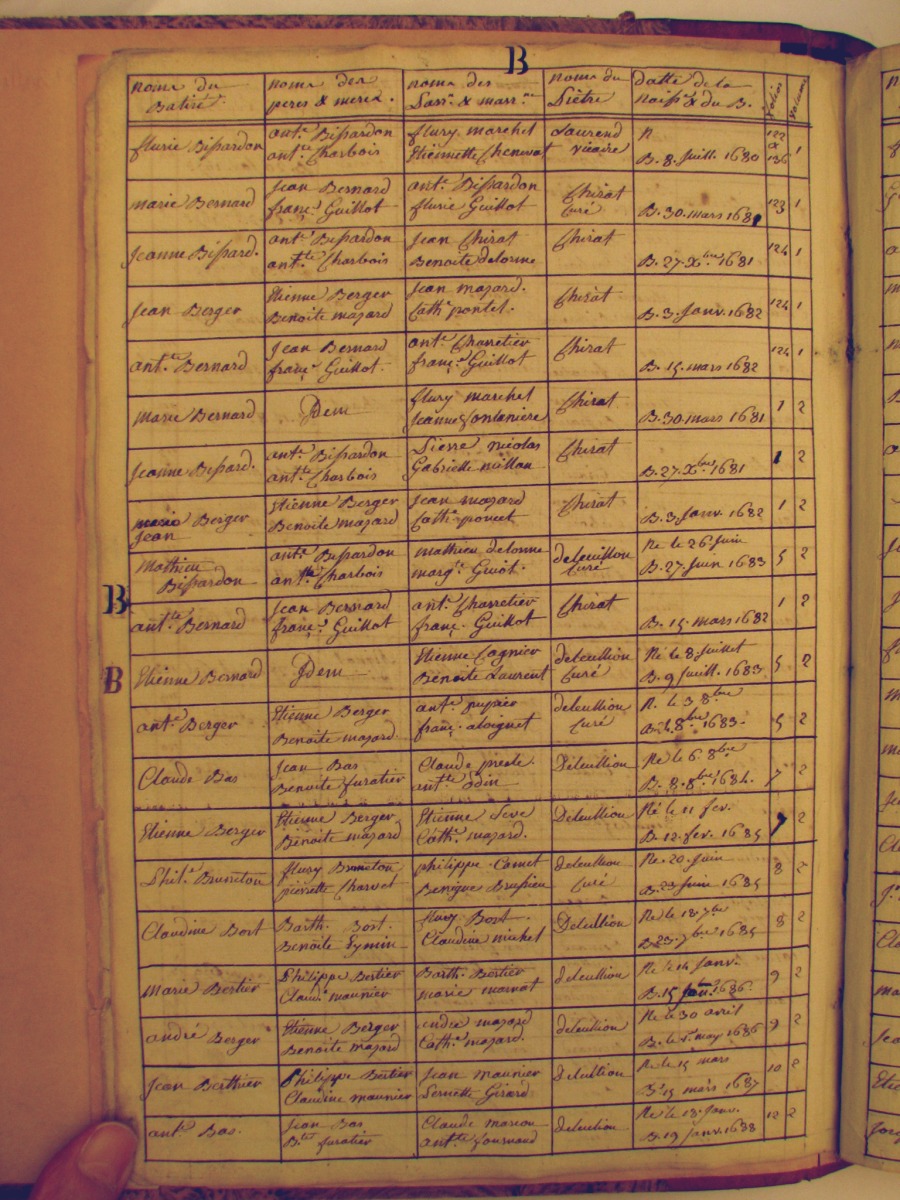 B
noms du Batisé noms des peres & meres. noms des Parr. & marr.nes noms du Prêtre datte de la naiss.e & du B. folios volumes
flurie Bissardon ant.e Bissardon ant.te Charbois flury marchet Etiennette Chenevat Laurend vicaire N B. 8. Juill. 1680 122 & 136 1
marie Bernard Jean Bernard franç.e Guillot ant. Bissardon flurie Guillot Chirat Curé B. 30. mars 1681 123 1
Jeanne Bissard. ant.e Bissardon ant.te Charbois Jean Chirat Benoite delorme Chirat B. 27. Xbre 1681 124 1
Jean Berger Etienne Berger Benoite mazard Jean mazard. Cath.e pontet. Chirat B. 3. Janv. 1682 124 1
ant.te Bernard Jean Bernard franç.e Guillot ant.e Charretier franç.e Guillot Chirat B. 15. mars 1682 124 1
marie Bernard Idem flury marchet Jeanne fontaniere Chirat B. 30. mars 1681 1 2
Jeanne Bissard. ant.e Bissardon ant.te Charbois Pierre nicolas Gabrielle millan Chirat B. 27. Xbre 1681 1 2
marie Berger Jean Etienne Berger Benoite mazard Jean mazard Cath.e poncet Chirat B. 3. Janv. 1682 1 2
Mathieu Bissardon ant.e Bissardon ant.te Charbois mathieu delorme marg.te Guiot. deleuillon Curé Né le 26. Juin B. 27. Juin 1683 5 2
B
ant.te Bernard Jean Bernard franç.e Guillot ant.e Charretier franç. Guillot Chirat B. 15. mars 1682 1 2
B
Etienne Bernard Idem Etienne Cognier Benoite Laurent deleullion Curé Né le 8. Juillet B. 9 Juill. 1683 5 2
ant.e Berger Etienne Berger Benoite mazard ant.e pupier franç.e aloignet deleullion Curé N. le 3 8bre 8bre 1683. 5 2
Claude Bas Jean Bas Benoite furatier Claude preste ant.te Odin Deleullion Né le 6. 8bre B. 8. 8bre 1684. 7 2
Etienne Berger Etienne Berger Benoite mazard Etienne Seve Cath.e mazard. Deleullion Né le 11 fev. B. 12. fev. 1685 7 2
Phil.e Bruneton flury Bruneton pierrette Charvet philippe Camet Benigne Brussieu deleullion Curé Né. 20. Juin B. 23 Juin 1685 8 2
Claudine Bort Barth. Bort. Benoite Eymin flury Bort Claudine michet Deleullion Né le 18. 7bre B 23. 7bre 1685 8 2
Marie Bertier Philippe Bertier Claud.e maunier Barth. Bertier marie marvat deleullion Né le 14 Janv. B. 15 Janv. 1686. 9 2
andré Berger Etienne Berger Benoite mazard andré mazard Cath.e mazard. deleullion Né le 30 avril B. le 1. may 1686 9 2
Jean Berthier Philippe Bertier Claudine maunier Jean maunier Pernette Girard deleullion Né le 15 mars B. 15 mars 1687 10 2
ant.e Bas. Jean Bas B.te furatier Claude marcou ant.te fournand deleullion Né le 18. Janv. B. 19 Janv. 1688 12 2